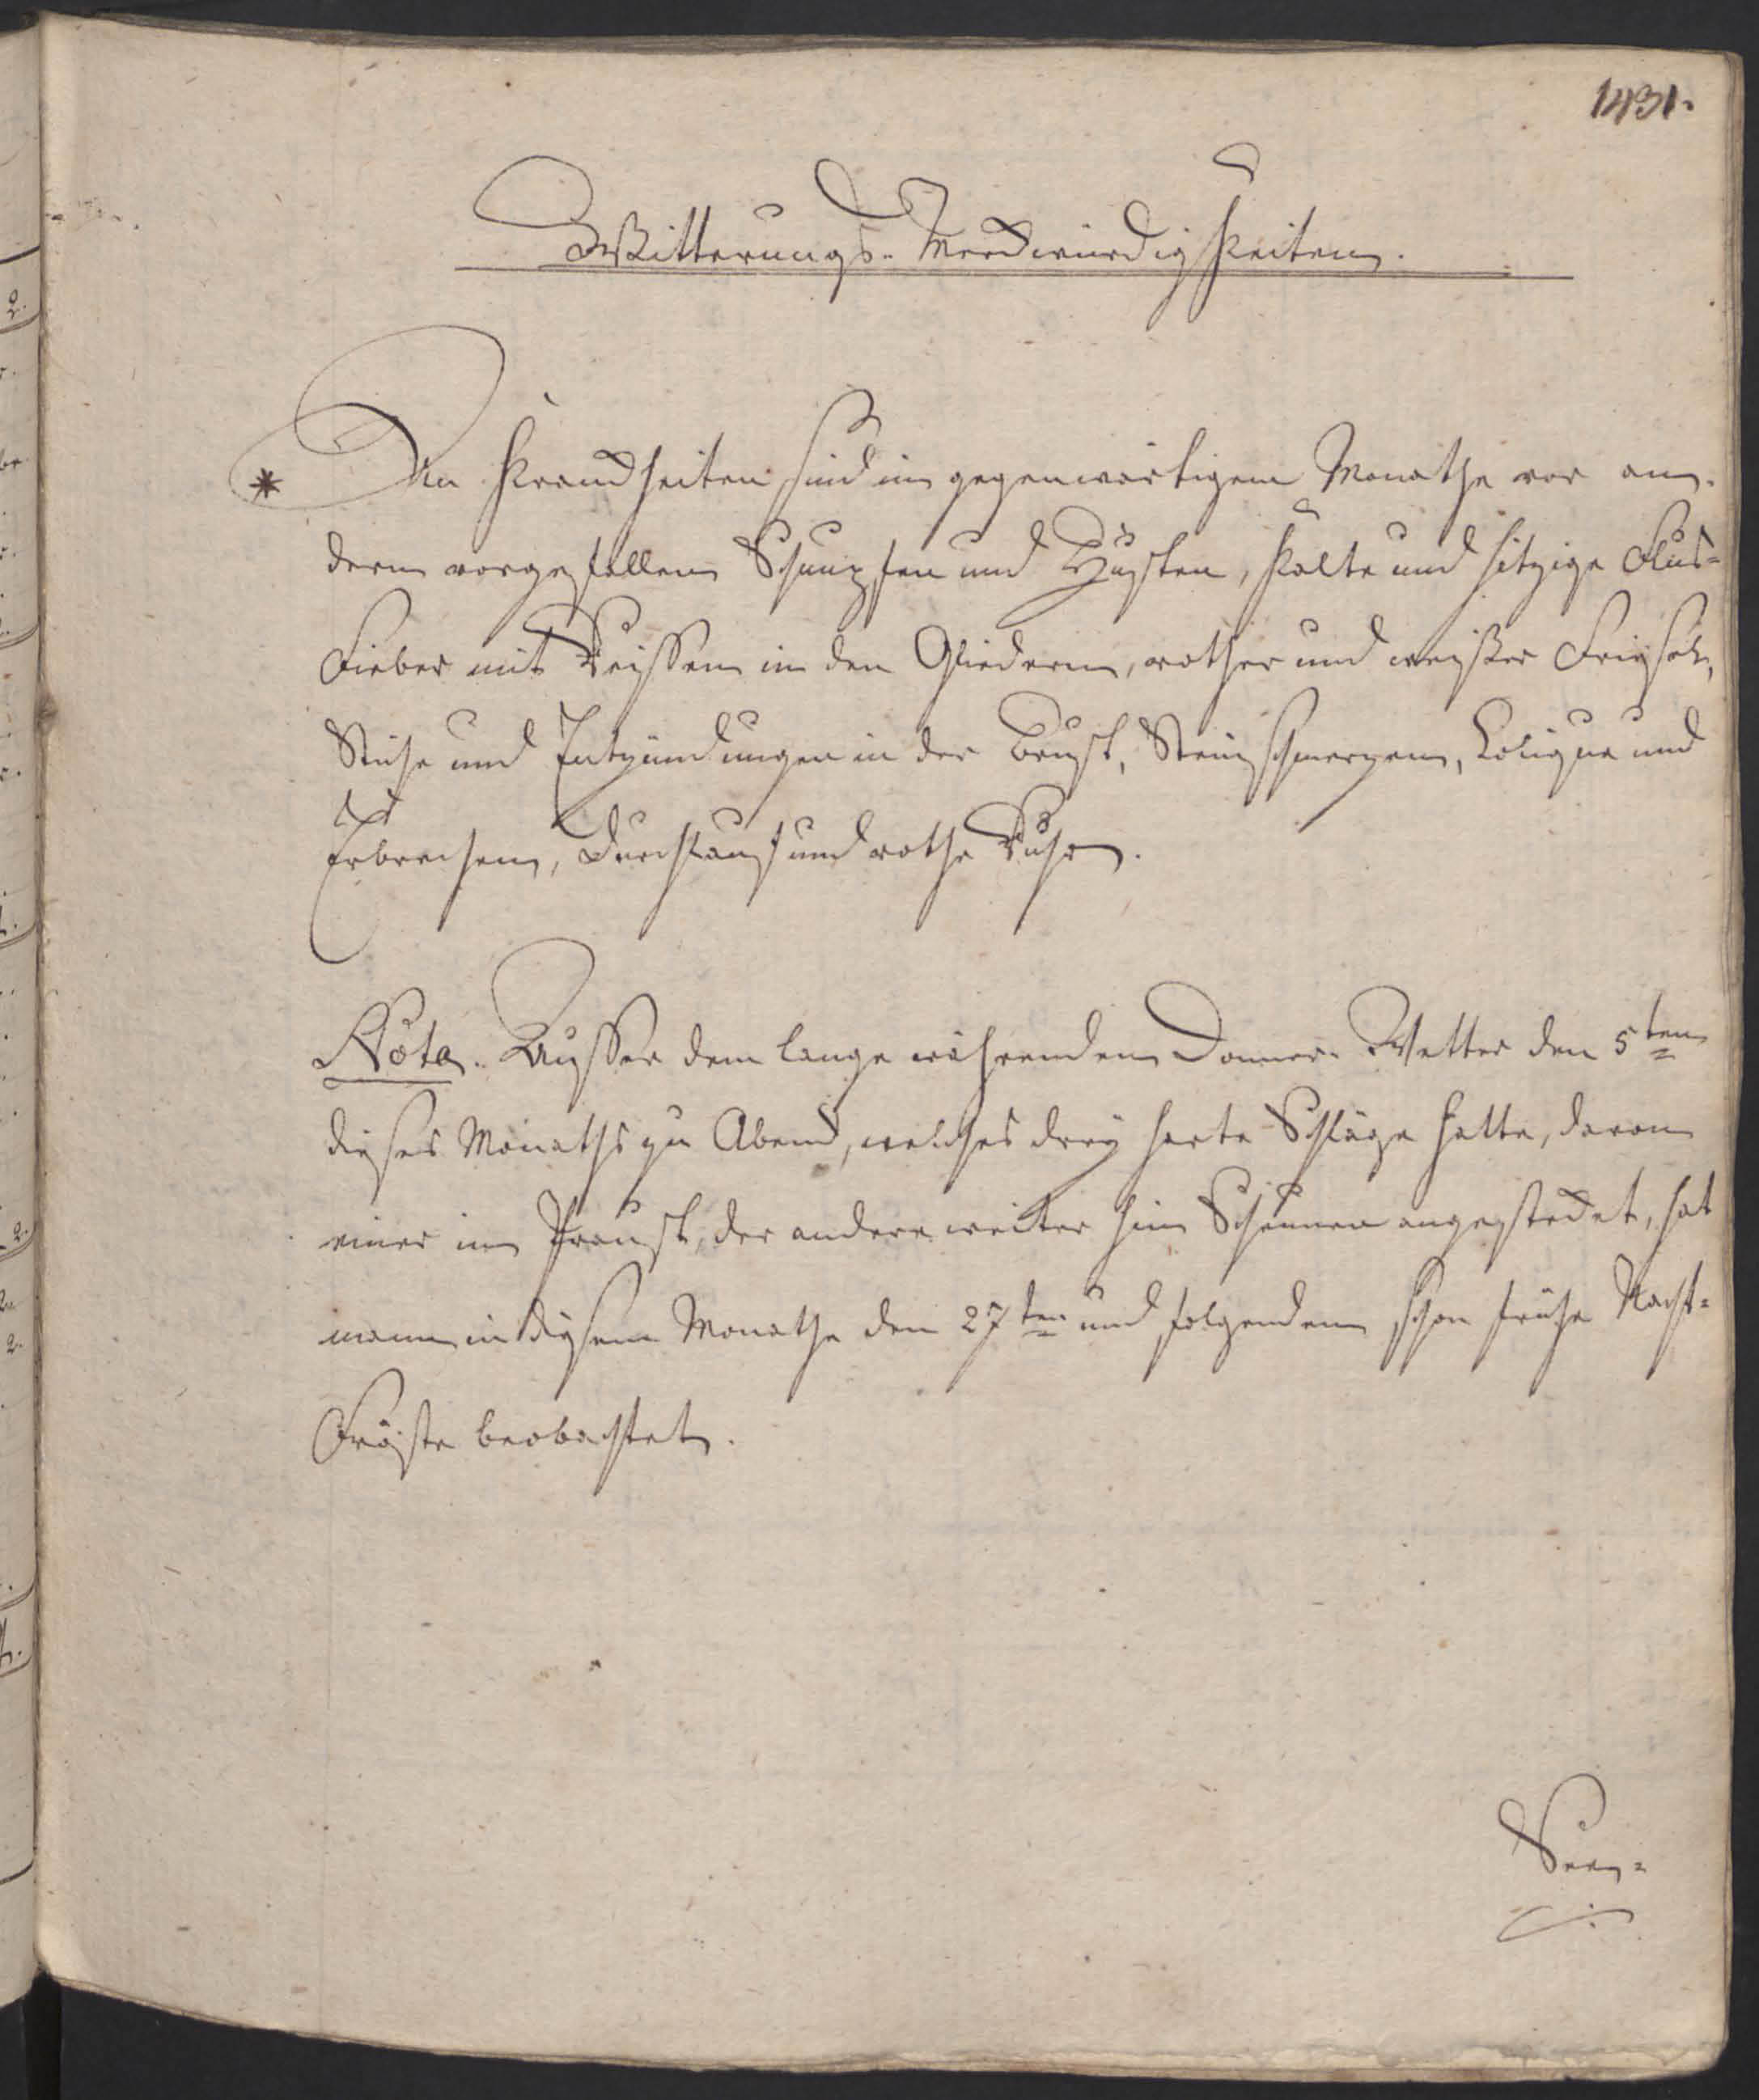 1431.
Witterungs-Merckwürdigkeiten.
* An Kranckheiten sind im gegenwärtigem Monathe vor an-
dern vorgefallen Schnupfen und Husten, kalte und hitzige Flus-
Fieber mit Reissen in den Gliedern, rother und weisser Frieseln,
Stiche und Entzündungen in der Brust, Steinschmerzen, Colique und
Erbrechen, Durchlauf und rothe Ruhr.
Nota. Ausser dem lange währenden Donner-Wetter den 5ten
dieses Monaths zu Abend, welches drey harte Schläge hatte, davon
einer in Praust, der andere weiter hin Scheunen angestecket, hat
man in diesem Monathe den 27ten und folgenden schon frühe Nacht-
Fröste beobachtet.